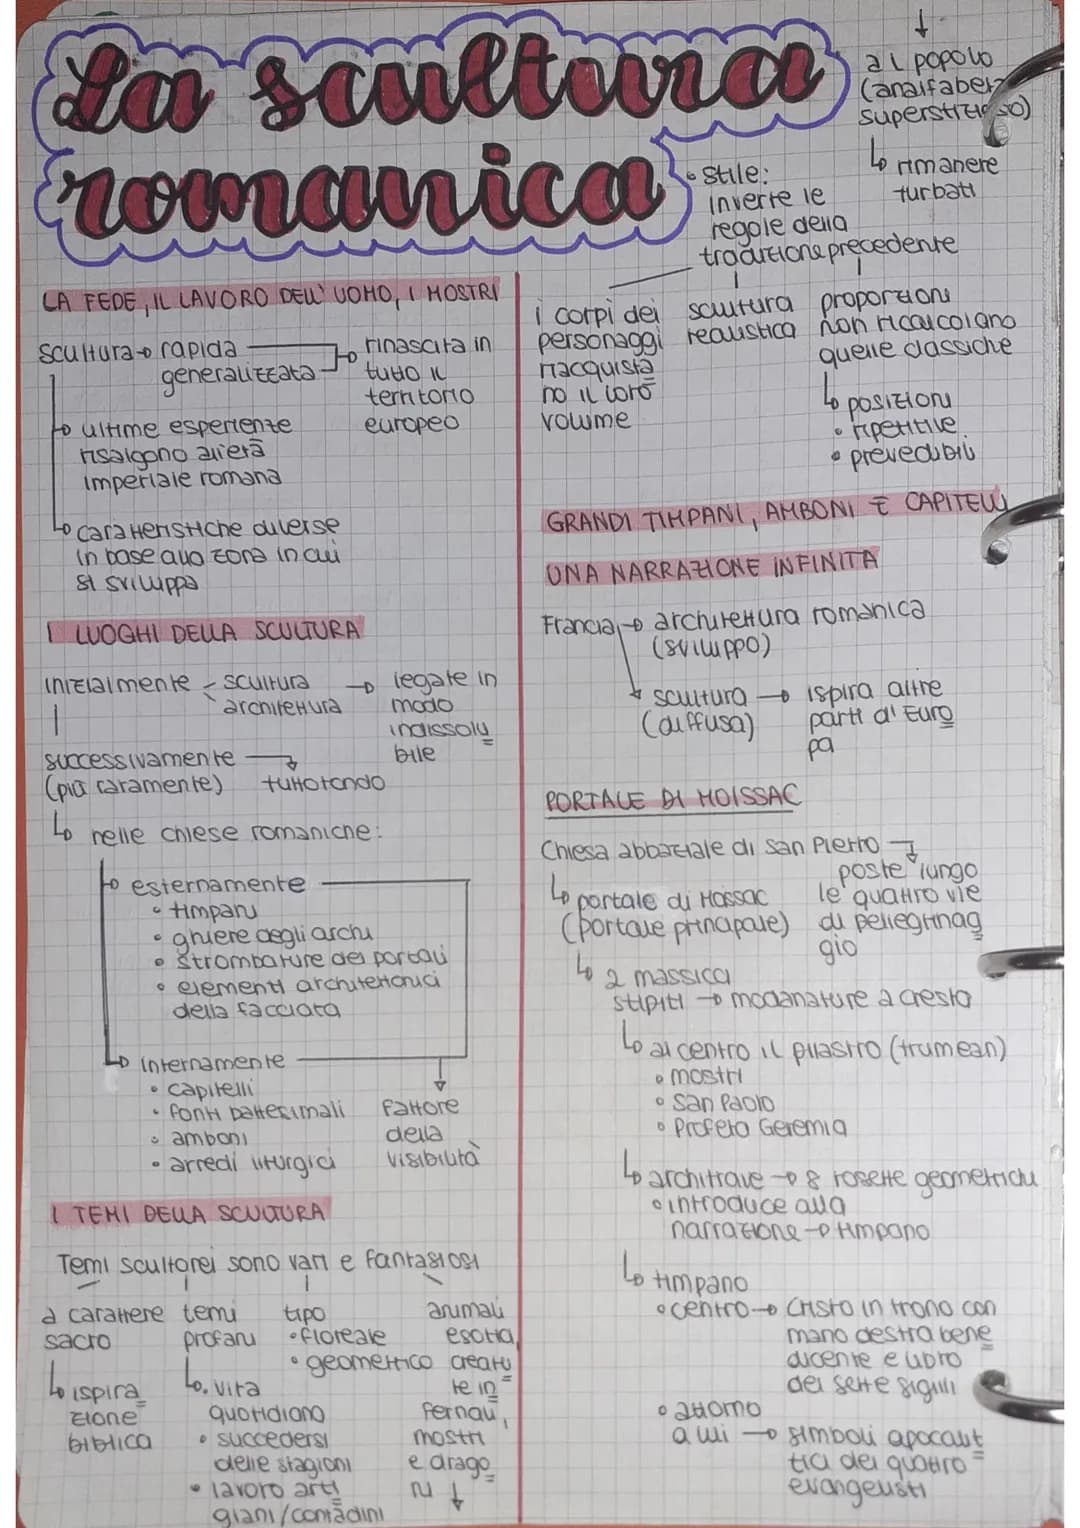 La scultura
romanica
LA FEDE, IL LAVORO DELL'UOMO, I MOSTRI
scultura → rapida
generalizzata
rinascita in
tutto il
territorio
europeo
ultime esperienze
risalgono all'età
imperiale romana
caratteristiche diverse
in base alla zona in cui
si sviluppa
I LUOGHI DELLA SCULTURA
inizialmente - scultura
architettura
→ legate in
modo
indissolu
bile
successivamente →
(più raramente) tuttotondo
nelle chiese romaniche:
esternamente
• timpani
• ghiere degli archi
• strombature dei portali
• elementi architettonici
della facciata
internamente
• capitelli
• fonti battesimali
• amboni
• arredi liturgici
fattore
della
visibilità
I TEMI DELLA SCULTURA
Temi scultorei sono vari e fantasiosi
a carattere
sacro
ispira
zione
biblica
temi
profani
• vita
quotidiana
• succedersi
delle stagioni
• lavoro arti
giani/contadini
tipo
• floreale
• geometrico
animali
esotici,
creatu
re in
fernali,
mostri
e drago
ni ↓
↓
al popolo
(analfabeta
superstizioso)
rimanere
turbati
• stile:
inverte le
regole della
tradizione precedente
i corpi dei
personaggi
riacquista
no il loro
volume
scultura
realistica
proporzioni
non ricalcolano
quelle classiche
posizioni
• ripetitive
• prevedibili
GRANDI TIMPANI, AMBONI E CAPITELLI
UNA NARRAZIONE INFINITA
Francia → architettura romanica
(sviluppo)
scultura → ispira altre
(diffusa) parti d'Euro
pa
PORTALE DI MOISSAC
Chiesa abbaziale di San Pietro
poste lungo
le quattro vie
di pellegrinag
gio
portale di Moissac
(portale principale)
2 massicci
stipiti → modanature a cresta
al centro il pilastro (trumean)
• mostri
• San Paolo
• Profeta Geremia
architrave → 8 rosette geometrichi
• introduce alla
narrazione → timpano
timpano
• centro → Cristo in trono con
mano destra bene
dicente e libro
dei sette sigilli
• attorno
a lui → simboli apocalit
tici dei quattro
evangelisti